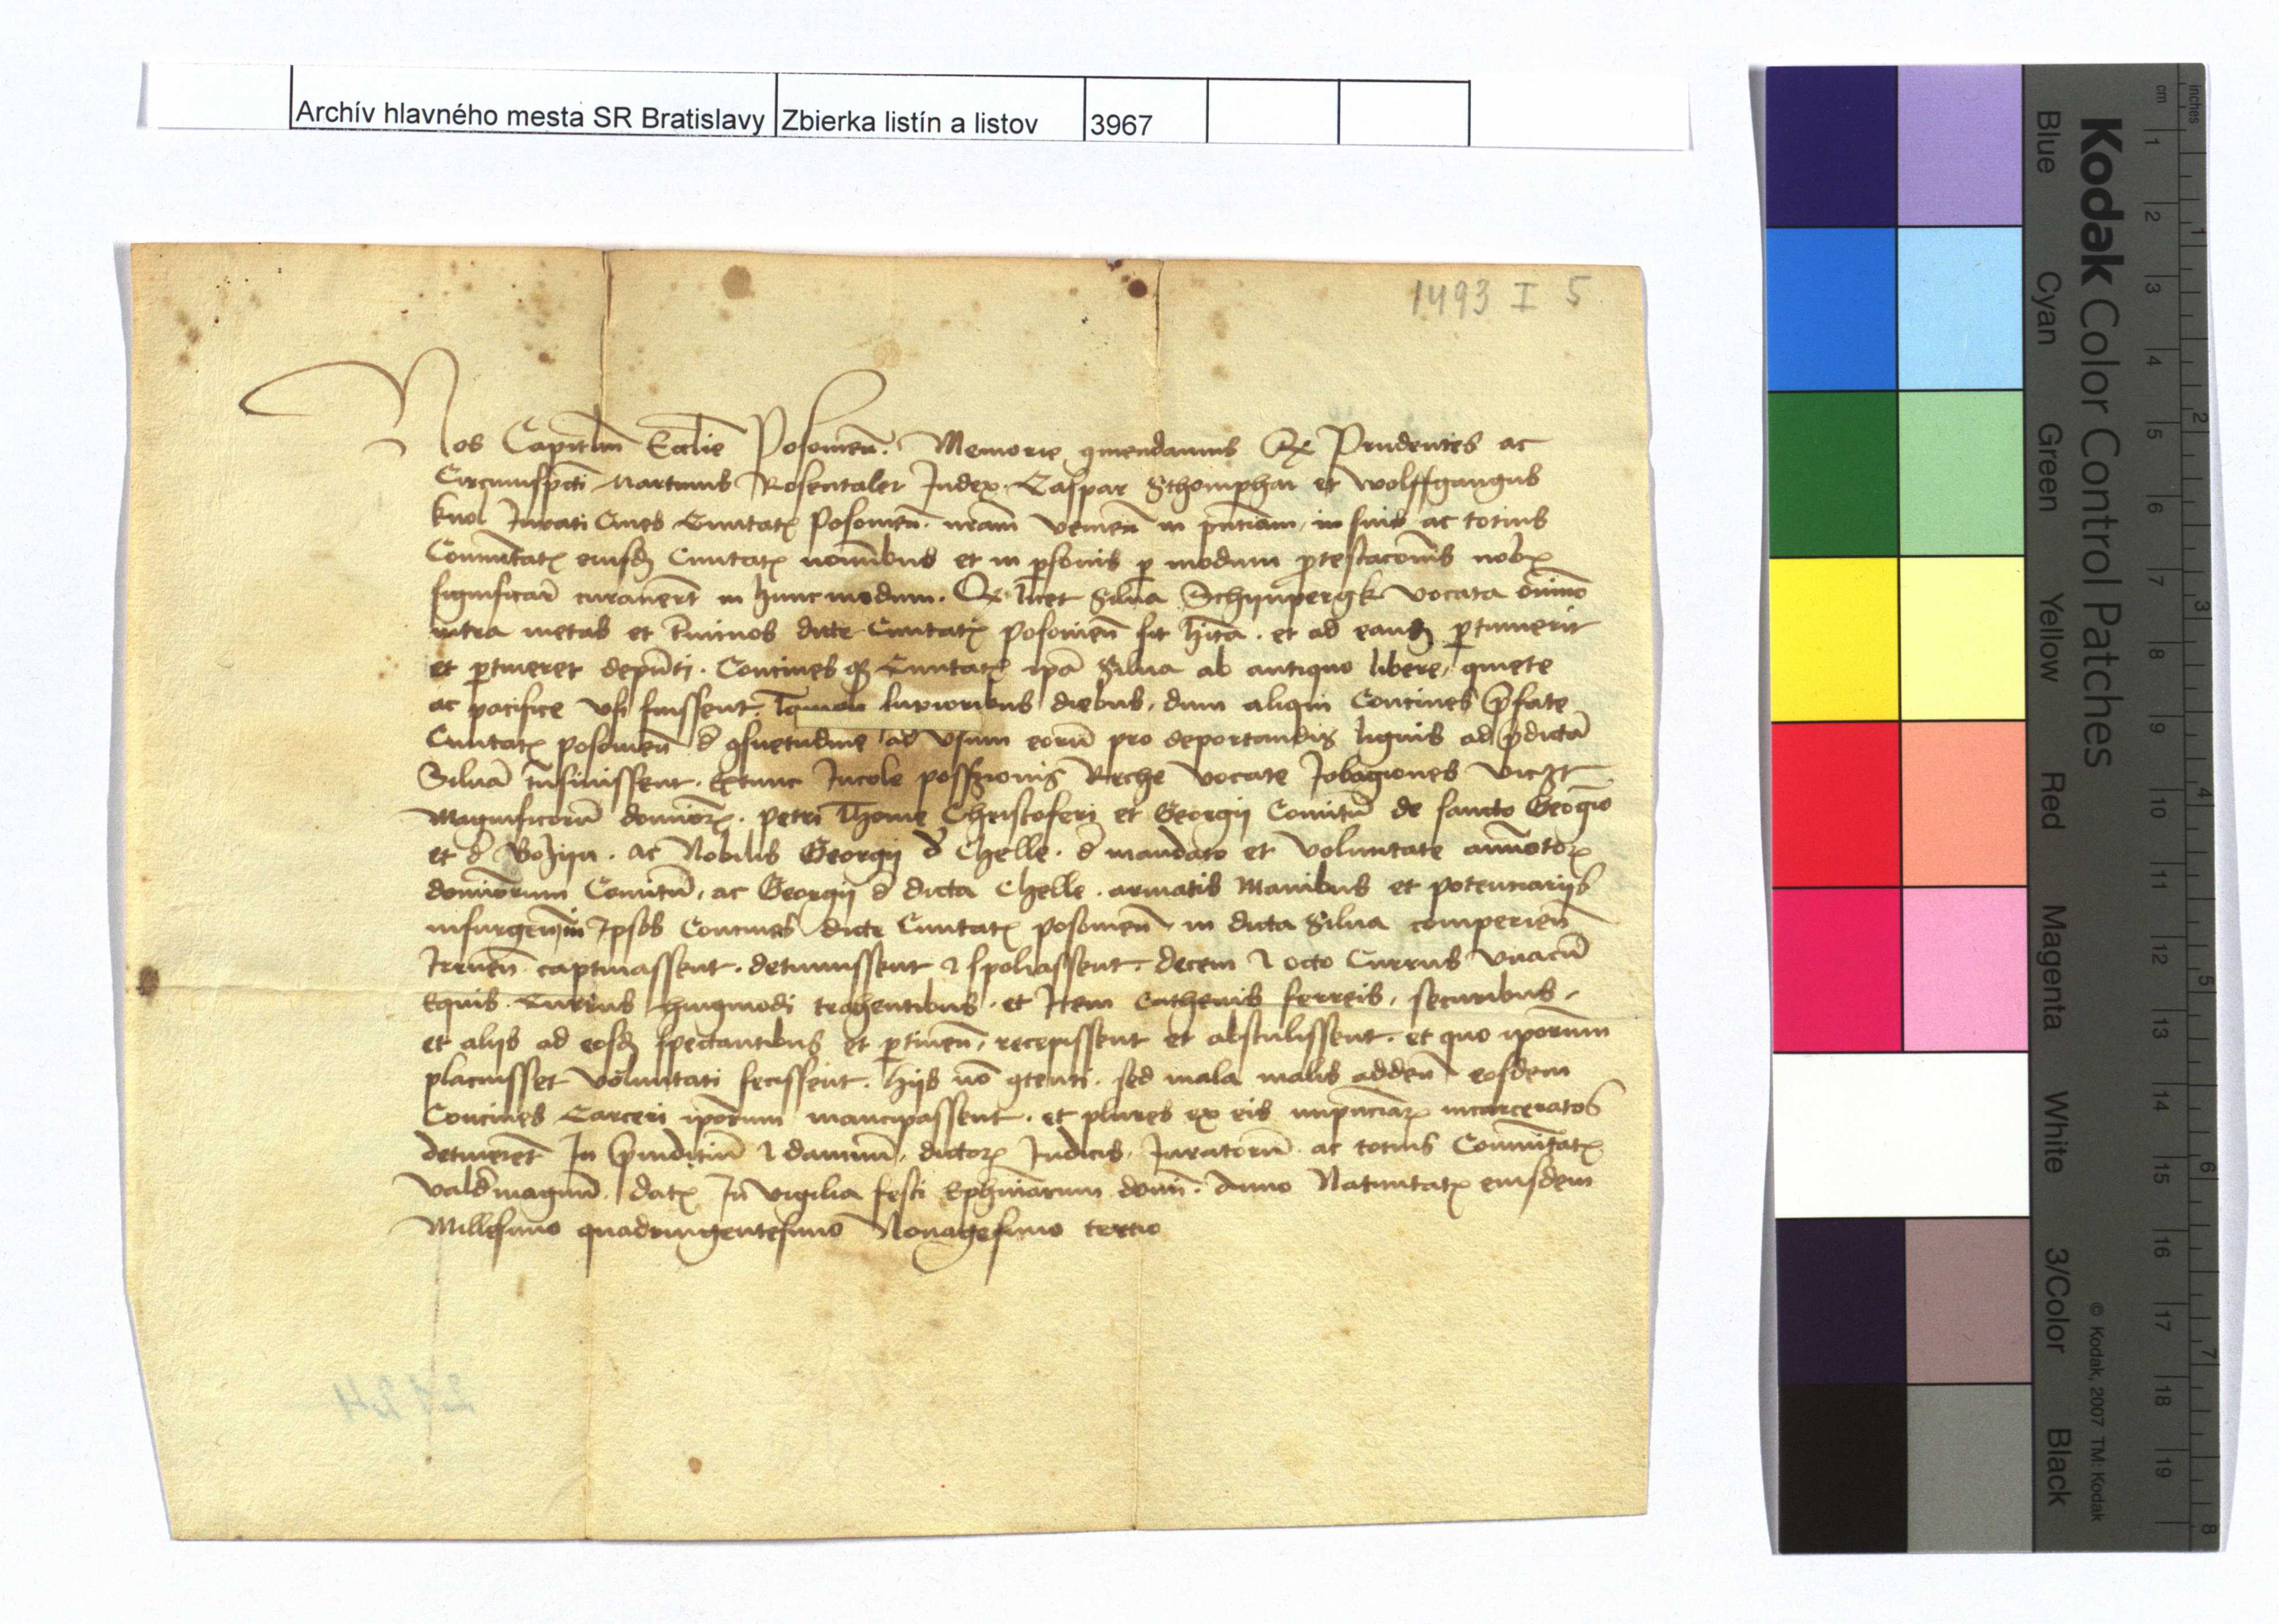 Archív hlavného mesta SR Bratislavy Zbierka listín a listov 3967
1493 I 5
Nos Capitlm̄ Ecclie Posonien̄. Memorie ꝯmendamus Qꝫ Prudentes ac
Circumspc̄ti Martinus Rosentaler Judex. Caspar Sthomphar et Wolffgangus
knol Jurati Ciues Ciuitatꝭ Posonien̄. nr̄am venien̄ in pn̄tiam, in suis ac totius
Com̄unitatꝭ eiusdꝫ Ciuitatꝭ noīnibus et in ꝑsonis ꝑ modum ꝓtestacōnis nobꝭ
significar̄ curauer̄t in hunc modum. Qꝫ licet Silua Schynpergk vocata om̄ino
intra metas et t̄minos dicte Ciuitatꝭ posonien̄ sit hita. et ad eandꝫ ꝑtinuerit
et ꝑtineret depn̄ti. Conciues qꝫ Ciuitatꝭ ip̄a Silua ab antiquo libere, quiete
ac pacifice vsi fuissent. Tamen diebus, dum aliqui Conciues p̄fate
Ciuitatꝭ posonien̄ d̄ ꝯsuetudine ad vsum eorū pro deportandis lignis ad p̄dictā
Siluā Extunc Jncole possꝫionis Reche vocate Jobagiones
Magnificorū dominorꝭ. Petri Thome Christoferi et Georgij Comitū de sancto Georgio
et d̄ Bozyn. ac Nobilis Georgij d̄ Chelle. d̄ mandato et voluntate annotatorꝭ
dominorum Comitū, ac Georgij d̄ dicta Chelle. armatis manibus et potenciarijs
insurgen̄ in Jpsos Conciues dicte Ciuitatꝭ posonien̄ in dicta Silua comperien̄
Jrruen̄ captiuassent. detinuissent ⁊ spoliassent. decem ⁊ octo Currus vnacū
Equis. Currus huiꝰmodi trahentibus. et Jtem Cathenis ferreis, securibus,
et alijs ad eosdꝫ spectantibus et ꝑtinen̄, recepissent et abstulissent. et quo ipōrum
placuisset voluntati fecissent. hijs nō ꝯtenti. sed mala malis adden̄ eosdem
Conciues Carceri ipōrum mancipassent. et plures ex eis incarceratos
detinerēt Jn p̄iudiciū ⁊ damnū, dictorꝭ Judicis. Juratorū ac totius Com̄unitatꝭ
vald̄ magnū. datꝭ Jn vigilia festi Epħiarum domī. Anno Natiuitatꝭ eiusdem
Millesimo quadringentesimo Nonagesimo tertio
Kodak Color Control Patches
Blue Cyan Green Yellow Red Magenta White 3/Color Black
© Kodak, 2007 TM: Kodak
inches 1 2 3 4 5 6 7 8
cm 1 2 3 4 5 6 7 8 9 10 11 12 13 14 15 16 17 18 19